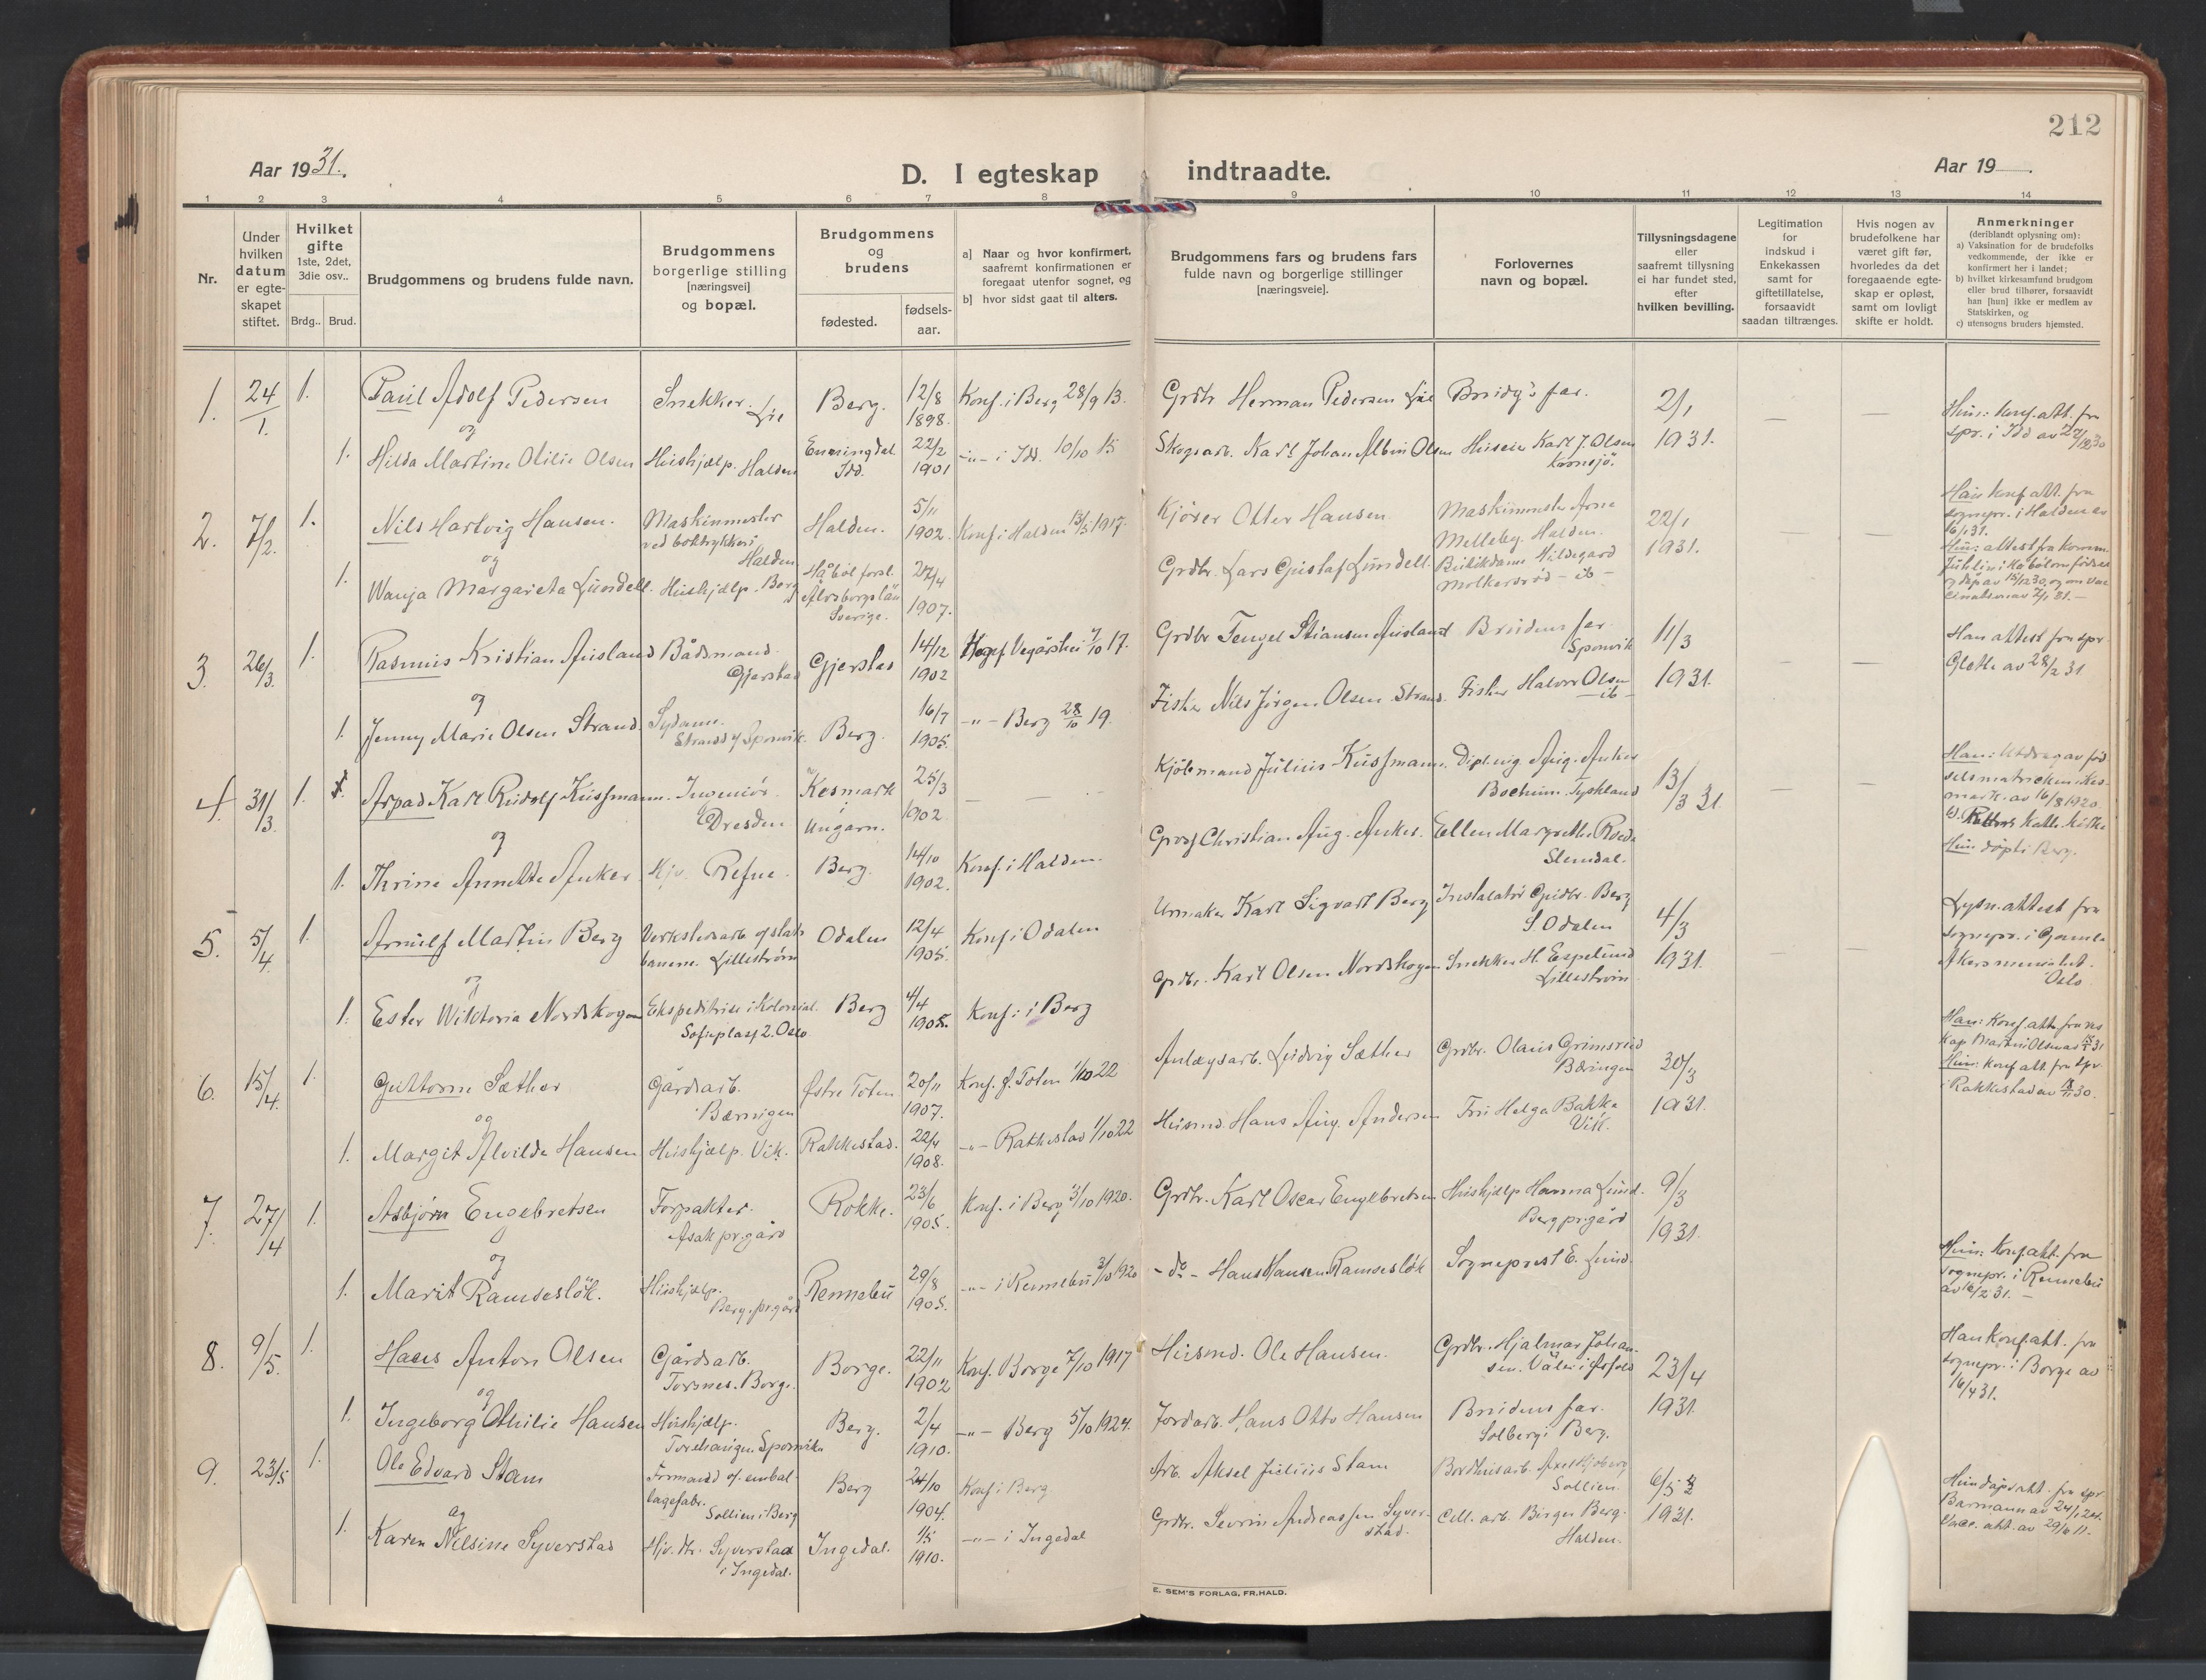 212
Aar 1931.
D. I egteskap indtraadte.
Aar 19 .
1 2 3 4 5 6 7 8 9 10 11 12 13 14
Nr.
Under hvilken datum er egte-skapet stiftet.
Hvilket gifte 1ste, 2det, 3die osv..
Brdg.. Brud.
Brudgommens og brudens fulde navn.
Brudgommens borgerlige stilling [næringsvei] og bopæl.
Brudgommens og brudens
fødested.
fødsels-aar.
a] Naar og hvor konfirmert, saafremt konfirmationen er foregaat utenfor sognet, og
b] hvor sidst gaat til alters.
Brudgommens fars og brudens fars fulde navn og borgerlige stillinger [næringsveie].
Forlovernes navn og bopæl.
Tillysningsdagene eller saafremt tillysning ei har fundet sted, efter hvilken bevilling.
Legitimation for indskud i Enkekassen samt for giftetillatelse, forsaavidt saadan tiltrænges.
Hvis nogen av brudefolkene har været gift før, hvorledes da det foregaaende egte-skap er opløst, samt om lovligt skifte er holdt.
Anmerkninger (deriblandt oplysning om):
a) Vaksination for de brudefolks vedkommende, der ikke er konfirmert her i landet;
b) hvilket kirkesamfund brudgom eller brud tilhører, forsaavidt han [hun] ikke er medlem av Statskirken, og
c) utensogns bruders hjemsted.
1. 24/1. 1. Paul Adolf Pedersen Snekker. Lie Berg. 12/8 1898. Konf. i Berg 28/9 13. Grdbr Herman Pedersen Lie Brudg's far. 2/1 1931.
og
1. Hilda Martine Otilie Olsen Huishjælp. Halden Enningdal Idd. 22/2 1901 -"- i Idd. 10/10 15 Skogsarb. Karl Johan Albin Olsen Huseier Karl J. Olsen Kornsjö.
Hun: konf. att. fra spr. i Idd av
2. 7/2. 1. Nils Hartvig Hansen. Maskinmester ved boktrykkeri Halden Halden. 5/11 1902. Konf. i Halden 13/5 1917. Kjører Otter Hansen Maskinmester Arne Melleby. Halden. 22/1 1931.
og
1. Wanja Margareta Lundell. Huishjælp. Berg Håbol forsl. Älvsborgslän Sverige. 27/4 1907. Grdbr. Lars Gustaf Lundell. Butikdame Hildegard Molkersrød - ib -
Han konf att. fra sognepr. i Halden av 16/1 31.
Hun: attest fra komm.
3. 26/3. 1. Rasmus Kristian Ausland Bådsmand. Gjerstad Gjerstad 14/12 1902 Vegårshei 7/10 17. Grdbr Tengel Stiansen Ausland Brudens far Sponvik 11/3 1931.
og
1. Jenny Marie Olsen Strand. Sydame. Strand i Sponvik. Berg. 16/7 1905. -"- Berg 28/10 19. Fisker Nils Jörgen Olsen Strand. Fisker Halvor Olsen - ib -
Han attest fra spr Glette av 28/2 31
4. 31/3. 1. Arpad Karl Rudolf Kussmann. Ingeniør. Dresden Kesmark i Ungarn. 25/3 1902 Kjöbmand Julius Kussmann. Dipl. ing. Aug. Anker Bochum. Tyskland 13/3 31
og
1. Thrine Annette Anker Hjv. Berg. 14/10 1902. Konf. i Halden. Christian Aug. Anker. Ellen Margrethe Stendal.
Han: Utdrag av fødselsmatrikelen Kesmark. av 16/8 1920.
Hun døpt i Berg.
5. 5/4. 1. Arnulf Martin Berg Verkstedsarb. v/ stats banene. Lillestrøm Odalen 12/4 1905. Konf. i Odalen Urmaker Karl Sigvart Berg Installatör Berg S. Odalen 4/3 1931.
og
1. Ester Wiktoria Nordskogen Ekspeditrise i Kolonial. Sofieplass 2. Oslo Berg 4/4 1905. Konf. i Berg Grdbr. Karl Olsen Nordskogen Snekker H. Espelund Lillestrøm
Lysn. attest fra sognepr. i Gamle Akers menighet. Oslo
6. 15/4. 1. Guttorm Sæther Gårdsarb. Bæringen Østre Toten 20/11 1907. Konf. Ø. Toten 1/10 22 Anlægsarb. Ludvig Sæther Grdbr. Olaus Grimsrud Bæringen 20/3 1931.
og
1. Margit Alvilde Hansen Huishjælp. Vik. Rakkestad. 22/4 1908. -"- Rakkestad 1/10 22 Husmd. Hans Aug. Andersen Fru Helga Bakke Vik.
Han: Konf. att. fra res kap. Martin Olsen av 31
Hun: konf att. fra spr. i Rakkestad av 30.
7. 27/4 1. Asbjørn Engebretsen Forpakter. Asak pr.gård Rokke. 23/6 1905. Konf. i Berg 3/10 1920. Grdbr. Karl Oscar Engebretsen Huishjælp Hanna Lund. Berg pr.gård 9/3 1931.
og
1. Marit Ramsesløk. Huishjælp. Berg. pr.gård Rennebu 29/8 1905. -"- i Rennebu 3/10 1920 - do - Hans Hansen Ramsesløk Sogneprest E. Lund.
Hun: Konf. att. fra sognepr. i Rennebu av 16/2 31. -
8. 9/5. 1. Hans Anton Olsen Gårdsarb. Torsnes. Borge. Borge. 22/11 1902 Konf. Borge 7/10 1917 Husmd. Ole Hansen. Grdbr. Hjalmar Johansen. Våler i Østfold 23/4 1931.
og
1. Ingeborg Othilie Hansen Huishjælp. Torehaugen. Sponvika Berg. 2/4 1910. -"- Berg 5/10 1924. Jordarb. Hans Otto Hansen Brudens far. Solberg i Berg.
Han konf. att. fra sognepr. i Borge av 16/4 31.
9. 23/5 1. Ole Edvard Stam Formand v/ emballagefabr. Sollien i Berg Berg 24/10 1904. Konf. i Berg Arb. Aksel Julius Stam Sollien. 6/5 1931.
og
1. Karen Nilsine Syverstad Hjv. dtr. Syverstad i Ingedal. Ingedal. 1/5 1910. -"- i Ingedal Grdbr. Severin Andreassen Syverstad. Cell. arb. Birger Berg. Halden.
Hun dåpsatt. fra spr. Barmann av 24/1 24. Vacc. att. av 29/6 11.
E. SEM'S FORLAG, FR.HALD.